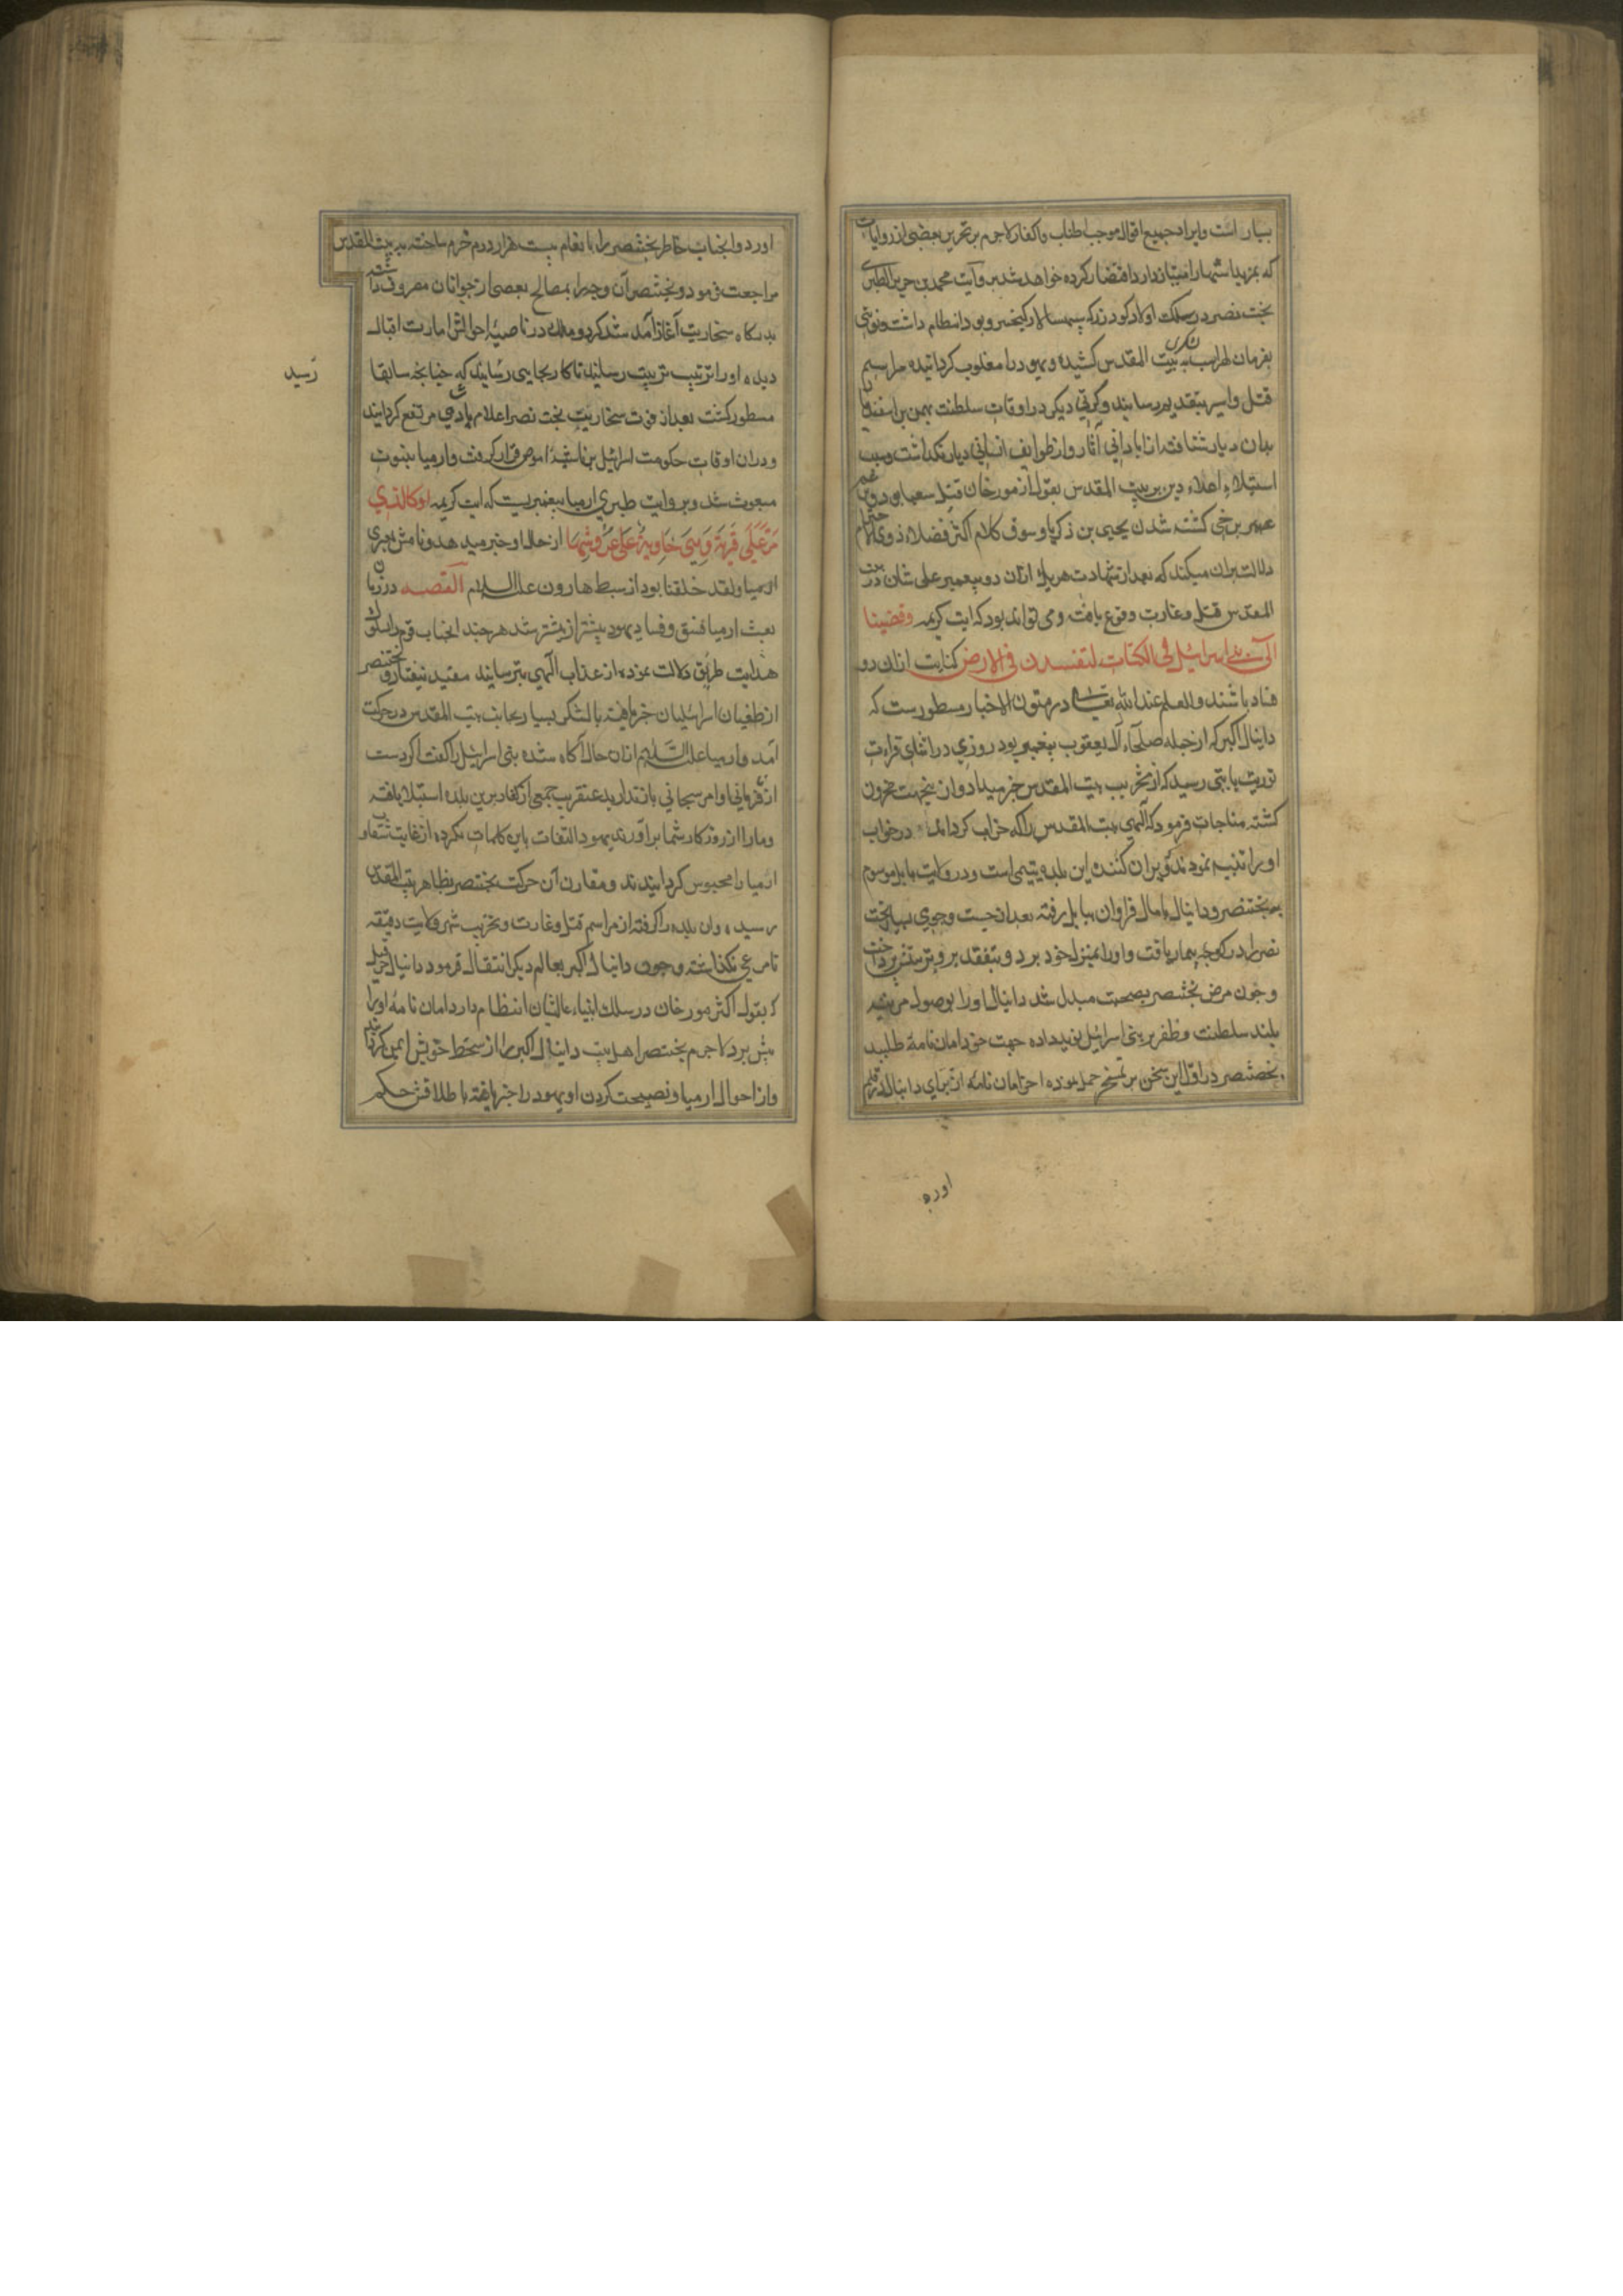 بسیار است و ایراد جمیع اقوال موجب اطناب و اکثار لاجرم بر تحریر بعضی از روایات
که بمزید اشتهار امتیاز دارد اقتضار کرده خواهد شد بروایت محمد بن جریر الطبری
بخت نصر در سلک اولاد کودرز که سپهسالار کیخسرو بود انتظام داشت و نوبتی
بفرمان لهراسب لشکری به بیت المقدس کشیده و یهود را مغلوب کردانیده مراسم
قتل و اسر بتقدیم رسانید و کرتی دیکر در اوقات سلطنت بهمن بن اسفندیار
بدان دیار شتافته از ابادانی آثار و از طوایف انسانی دیار نکذاشت و سبب
استیلاء اعداء دین بر بیت المقدس بقول از مورخان قتل شعیا بود و بزعم
کشته شدن یحیی بن زکریا و سوق کلام اکثر فضلاء ذوی الاحترام
دلالت بران میکند که بعد از شهادت هریک ازان دو پیغمبر علی شان در بیت
المقدس قتل و غارت وقوع یافت و می تواند بود که ایت کریمه وقضینا
الی بنی اسرائیل فی الکتاب لتفسدن فی الارض کنایت ازان دو
فساد باشد والعلم عند الله تعالی در متون الاخبار مسطورست که
دانیال اکبر که از جمله صلحاء آل یعقوب پیغمبر بود روزی در اثنای قراءت
توریت بایتی رسید که از تخریب بیت المقدس خبر میداد و ازینجهت محزون
کشته مناجات فرمود که الهی بیت المقدس را که خراب کرداند در خواب
او را تنبیه نمودند که ویران کننده این بلده یتیمی است در ولایت بابل موسوم
ببختنصر و دانیال با مال فراوان ببابل رفته بعد از جست و جوی بسیار بخت
نصر را در کوچه بیمار یافت و او را بمنزل خود برد و بتفقد برو پرستش پرداخت
و چون مرض بختنصر بصحت مبدل شد دانیال او را بوصول مرتبه
بلند سلطنت و ظفر بر بنی اسرائیل نوید داده جهت خود امان نامه طلبید
بختنصر در اول این سخن بر تمسخر حمل نموده اخر امان نامه از برای دانیال در قلم
اورده
اورد و انجناب خاطر بختنصر را بانعام بیست هزار درم خرم ساخته به بیت المقدس
مراجعت فرمود و بختنصر آن وجه را بمصالح بعضی از جوانان مصروف داشته
بدرکاه سخاریب آغاز آمد شد کرد و ملک در ناصیه احوالش امارت اقبال
دیده او را ترتیب تربیت رسانید تا کار بجایی رسانید که چنانچه سابقا
رسید
مسطور کشت بعد از فوت سخاریب بخت نصر اعلام پادشاهی مرتفع کردانید
و دران اوقات حکومت اسرائیل بن ناشیه اموص قرار کرفت و ارمیا بنبوت
مبعوث شد و بروایت طبری ارمیا پیغمبریست که ایت کریمه او کالذی
مر علی قریة وهی خاویة علی عروشها از حال او خبر میدهد و نامش بعبری
ارمیا ولقد خلقنا بود از سبط هارون علیه السلام القصه در زمان
بعث ارمیا فسق و فساد یهود بیشتر از پیشتر شد هر چند انجناب قوم را بسلوک
هدایت طریق دلالت نموده از عذاب الهی بترسانید مفید نیفتاد و بختنصر
از طغیان اسرائیلیان خبر یافته با لشکر بسیار بجانب بیت المقدس در حرکت
آمد و ارمیا علیه السلام ازان حال آکاه شده بنی اسرائیل را کفت اکر دست
از نافرمانی اوامر سبحانی باز ندارید عنقریب جمعی از کفار برین بلده استیلا یافته
دمار از روزکار شما براورند یهود التفات باین کلمات نکرده از غایت شقاوت
ارمیا را محبوس کردانیدند و مقارن آن حرکت بختنصر بظاهر بیت المقدس
رسید و ان بلده را کرفته از مراسم قتل و غارت و تخریب شهر و ولایت دقیقه
نامرعی نکذاشت و چون دانیال اکبر بعالم دیکر انتقال فرمود دانیال
که بقول اکثر مورخان در سلک انبیاء عالیشان انتظام دارد امان نامه او را
پیش برد لاجرم بختنصر اهل بیت دانیال اکبر را از سخط خویش ایمن کردانید
و از احوال ارمیا و نصیحت کردن او یهود را خبر یافته باطلاقش حکم